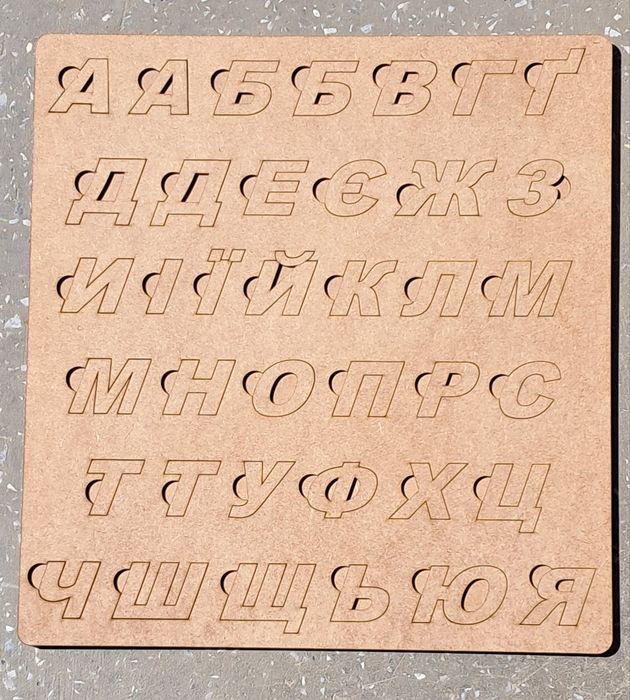 А А Б Б В Г Ґ
Д Д Е Є Ж З
И І Ї Й К Л М
М Н О П Р С
Т Т У Ф Х Ц
Ч Ш Щ Ь Ю Я